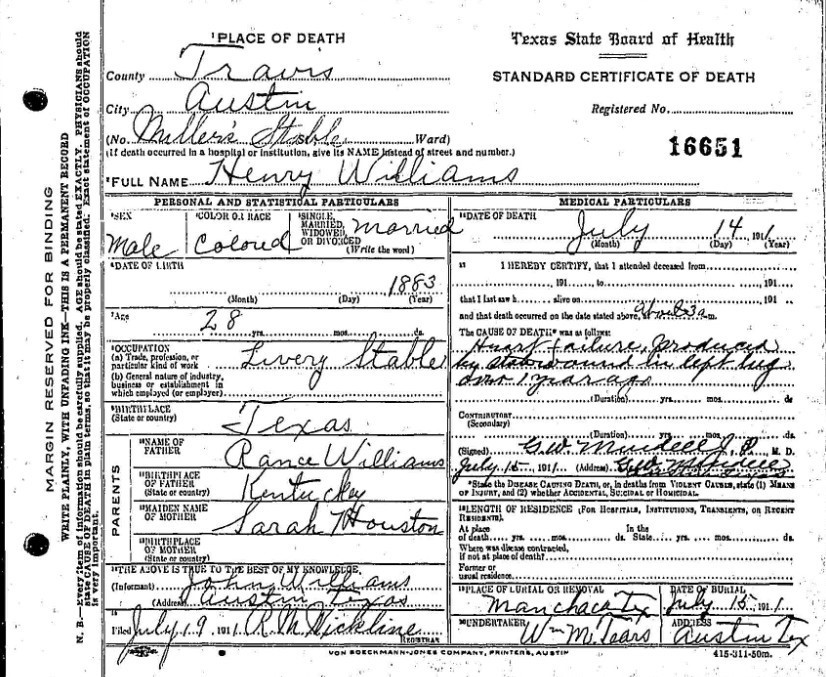 ¹PLACE OF DEATH
Texas State Board of Health
STANDARD CERTIFICATE OF DEATH
County Travis
City Austin
Registered No.
(No. Millers Stable Ward)
(If death occurred in a hospital or institution, give its NAME instead of street and number.)
16651
²FULL NAME Henry Williams
PERSONAL AND STATISTICAL PARTICULARS
³SEX Male
⁴COLOR OR RACE Colored
⁵SINGLE, MARRIED, WIDOWED, OR DIVORCED (Write the word) Married
⁶DATE OF BIRTH
1883
(Month) (Day) (Year)
⁷Age 28 yrs. mos. ds.
⁸OCCUPATION
(a) Trade, profession, or particular kind of work Livery Stable
(b) General nature of industry, business or establishment in which employed (or employer)
⁹BIRTHPLACE
(State or country) Texas
PARENTS
¹⁰NAME OF FATHER Rance Williams
¹¹BIRTHPLACE OF FATHER (State or country) Kentuckey
¹²MAIDEN NAME OF MOTHER Sarah Houston
¹³BIRTHPLACE OF MOTHER (State or country)
¹⁴THE ABOVE IS TRUE TO THE BEST OF MY KNOWLEDGE
(Informant) John Williams
(Address) Austin Texas
¹⁵
Filed July 19 1911 R. M. Wickline
REGISTRAR
MEDICAL PARTICULARS
¹⁶DATE OF DEATH
July 14 1911
(Month) (Day) (Year)
¹⁷ I HEREBY CERTIFY, that I attended deceased from
, 191 to , 191
that I last saw h alive on , 191
and that death occurred on the date stated above, about 3 a m.
The CAUSE OF DEATH* was as follows:
Heart failure, produced
by stab wound in left lug
about 1 year ago
(Duration) yrs. mos. ds.
CONTRIBUTORY
(Secondary)
(Duration) yrs. mos. ds.
(Signed) G. W. J. P. M. D.
July 15, 1911 (Address)
*State the DISEASE CAUSING DEATH, or, in deaths from VIOLENT CAUSES, state (1) MEANS
OF INJURY, and (2) whether ACCIDENTAL, SUICIDAL OR HOMICIDAL.
¹⁸LENGTH OF RESIDENCE (FOR HOSPITALS, INSTITUTIONS, TRANSIENTS, OR RECENT
RESIDENTS).
At place of death yrs. mos. ds. In the State yrs. mos. ds.
Where was disease contracted,
if not at place of death?
Former or
usual residence
¹⁹PLACE OF BURIAL OR REMOVAL Manchaca Tex
DATE OF BURIAL July 15 1911
²⁰UNDERTAKER Wm M. Tears
ADDRESS Austin Tex
VON BOECKMANN-JONES COMPANY, PRINTERS, AUSTIN
415-311-50m.
MARGIN RESERVED FOR BINDING
WRITE PLAINLY, WITH UNFADING INK—THIS IS A PERMANENT RECORD
N. B.—Every item of information should be carefully supplied. AGE should be stated EXACTLY. PHYSICIANS should
state CAUSE OF DEATH in plain terms, so that it may be properly classified. Exact statement of OCCUPATION
is very important.